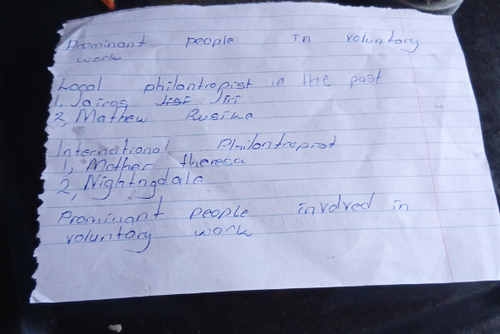 Prominant people in voluntary
work
Local philantropist in the past
1. Jairos Jiri
2, Mathew Rusike
International Philantropist
1, Mother theresa
2, Nightngdale
Prominant people involved in
voluntary work